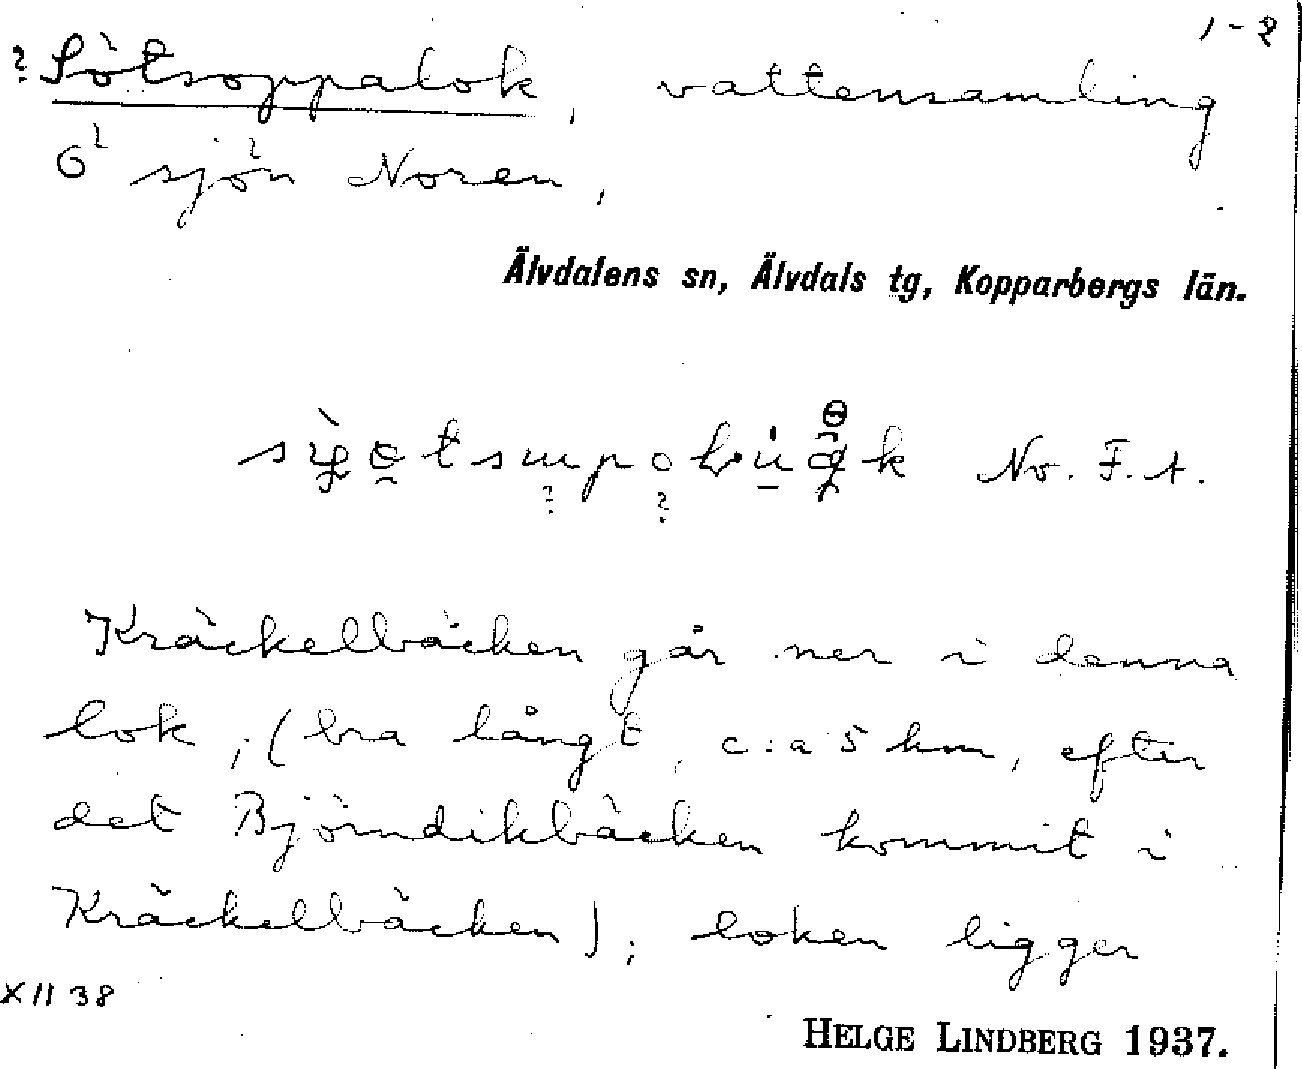 1-2
? Sötsoppalok, vattensamling
ö sjön Noren,
Älvdalens sn, Älvdals tg, Kopparbergs län.
No. F.A.
Kräckelbäcken går ner i denna
lok; (bra långt, c:a 5 km, efter
det Björndikbäcken kommit i
Kräckelbäcken); loken ligger
XII 38
HELGE LINDBERG 1937.